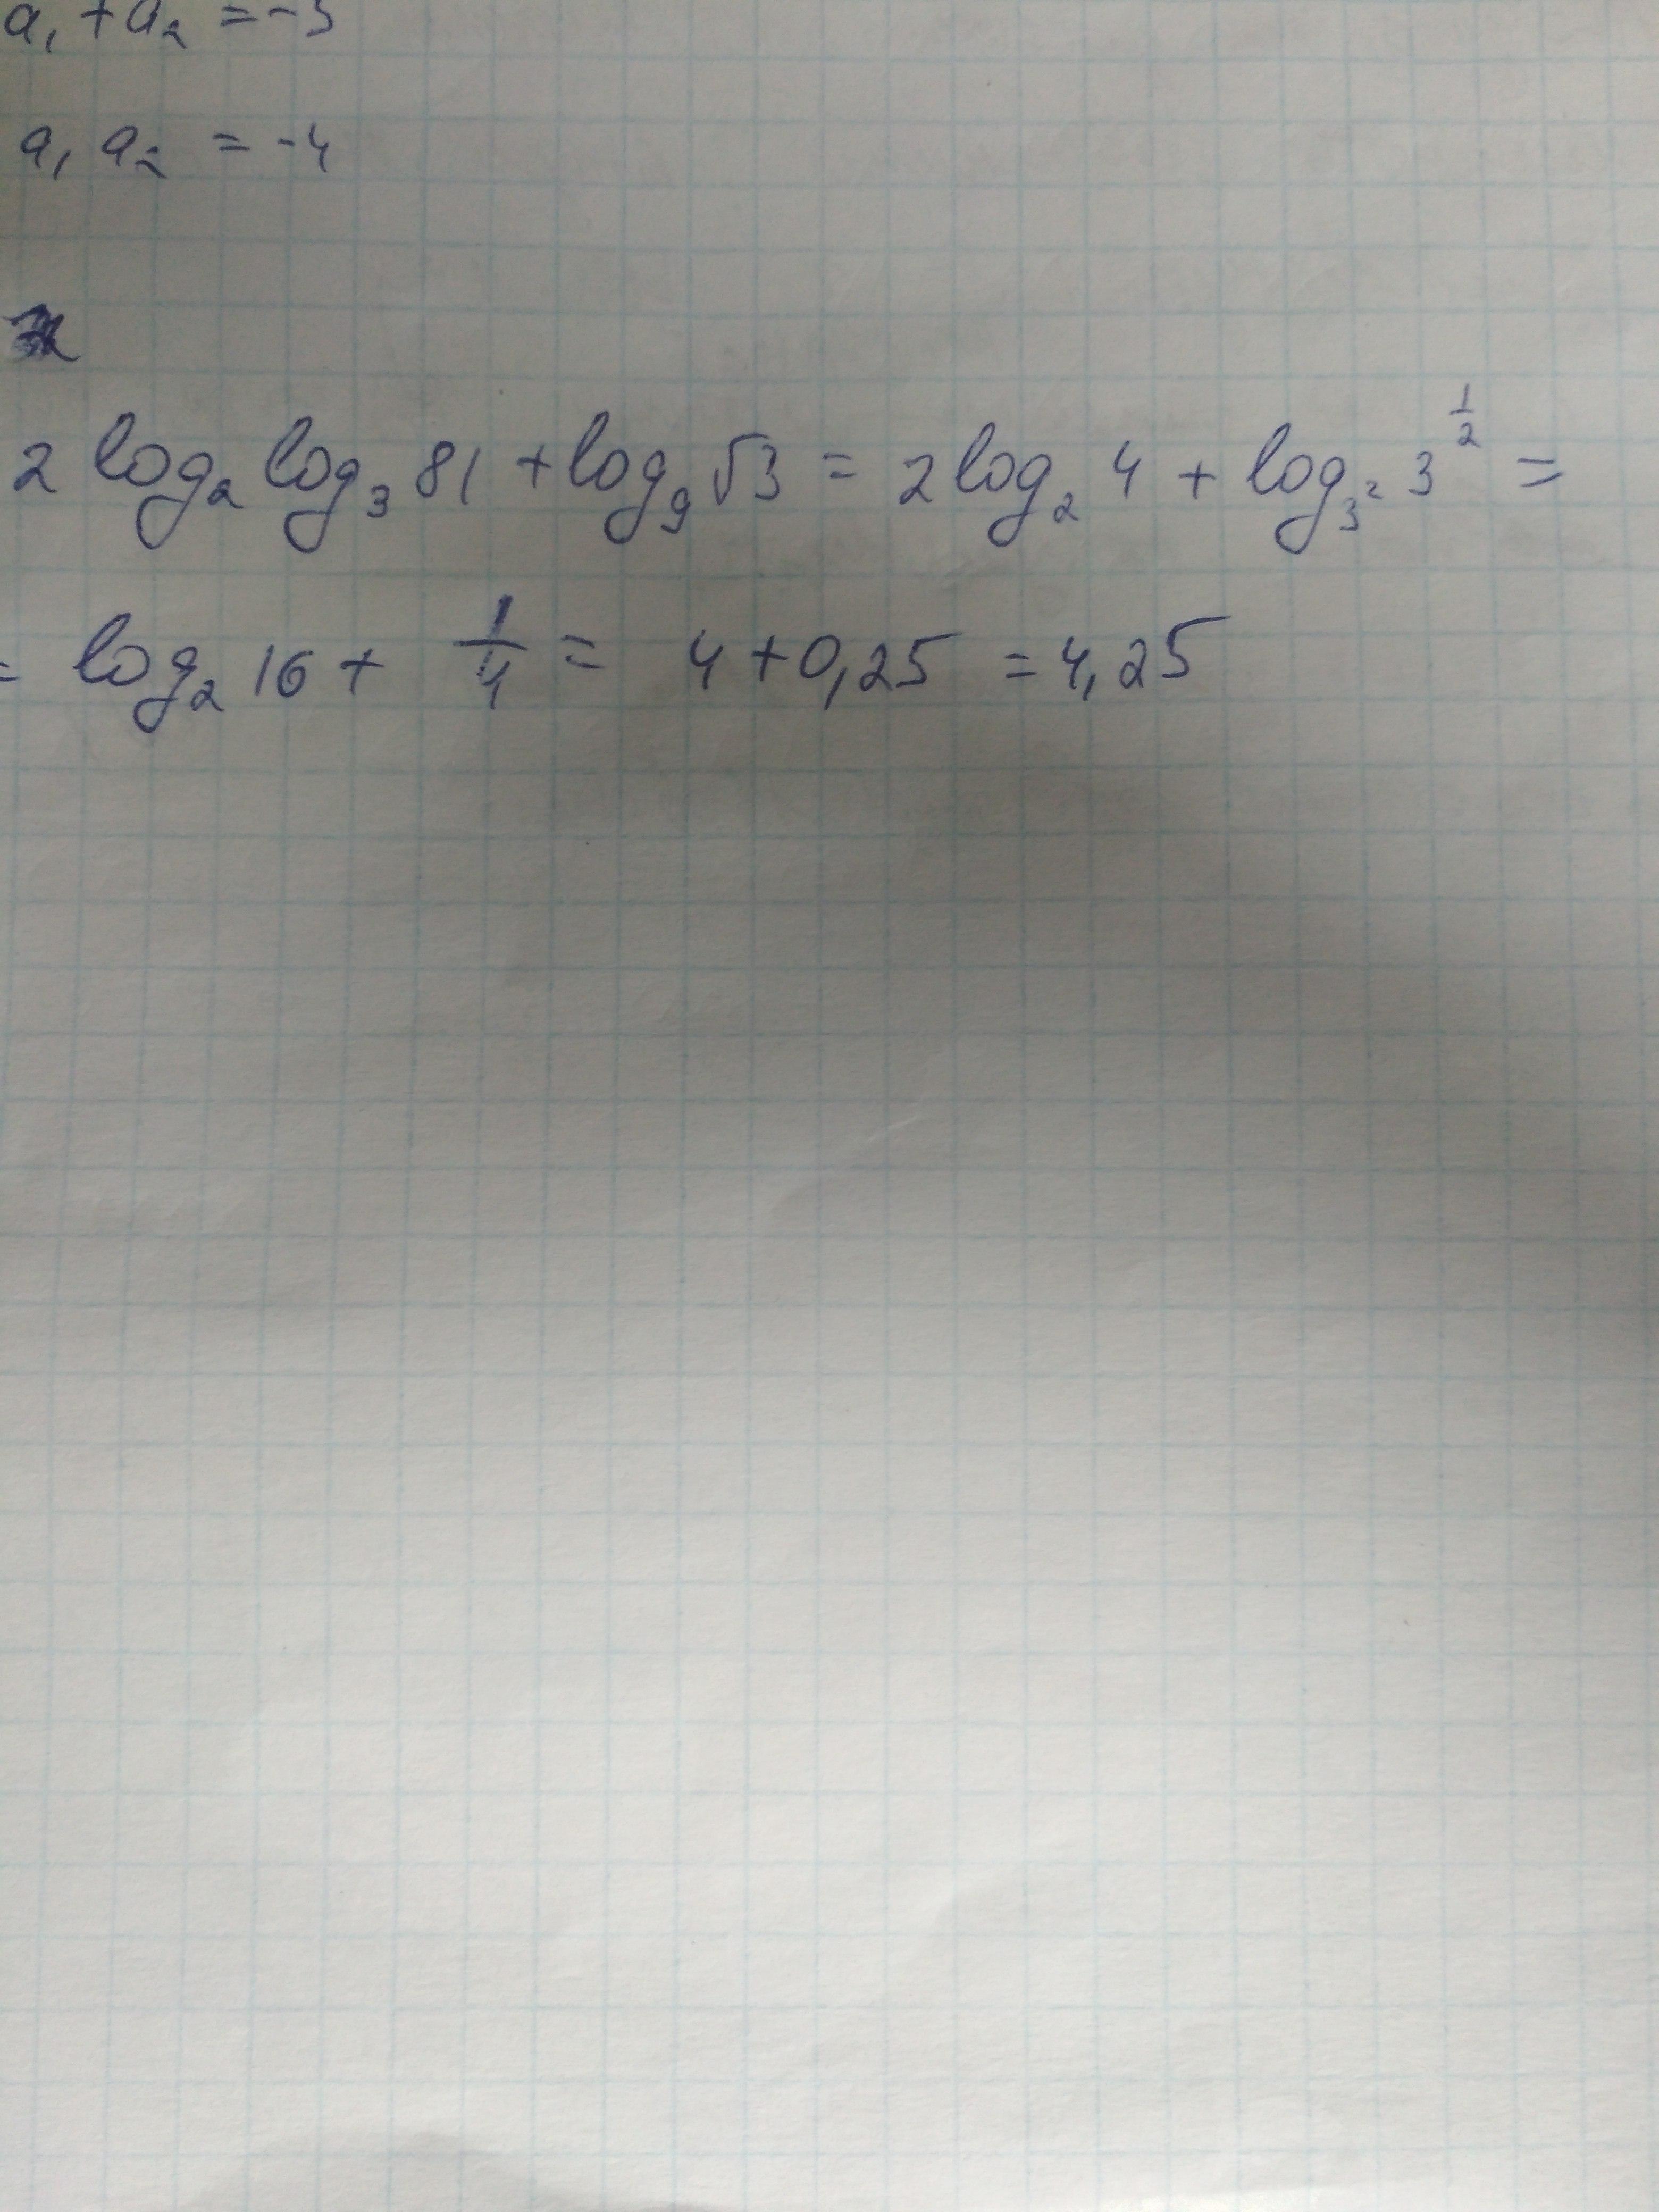 a₁ + a₂ = -3
a₁ a₂ = -4
2 log₂ log₃ 81 + log₉ √3 = 2 log₂ 4 + log₃² 3^(1/2) =
= log₂ 16 + 1/4 = 4 + 0,25 = 4,25